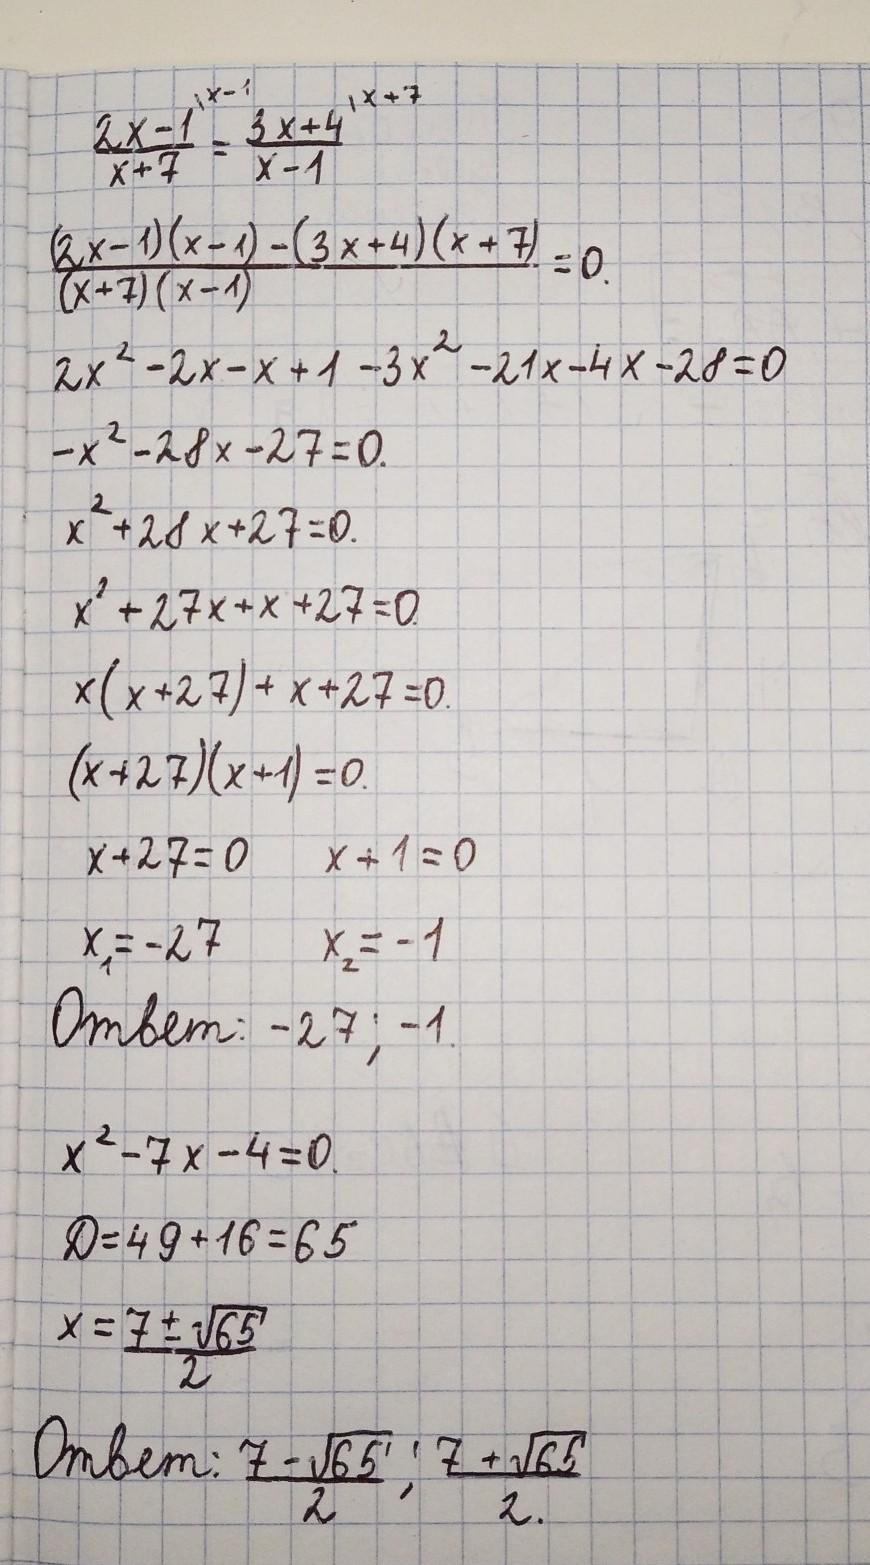 (2x-1)/(x+7) \x-1 = (3x+4)/(x-1) \x+7
((2x-1)(x-1)-(3x+4)(x+7))/((x+7)(x-1)) =0.
2x²-2x-x+1-3x²-21x-4x-28=0
-x²-28x-27=0.
x²+28x+27=0.
x²+27x+x+27=0
x(x+27)+x+27=0.
(x+27)(x+1)=0.
x+27=0 x+1=0
x₁=-27 x₂=-1
Ответ: -27; -1.
x²-7x-4=0.
D=49+16=65
x=(7±√65)/2
Ответ: (7-√65)/2; (7+√65)/2.